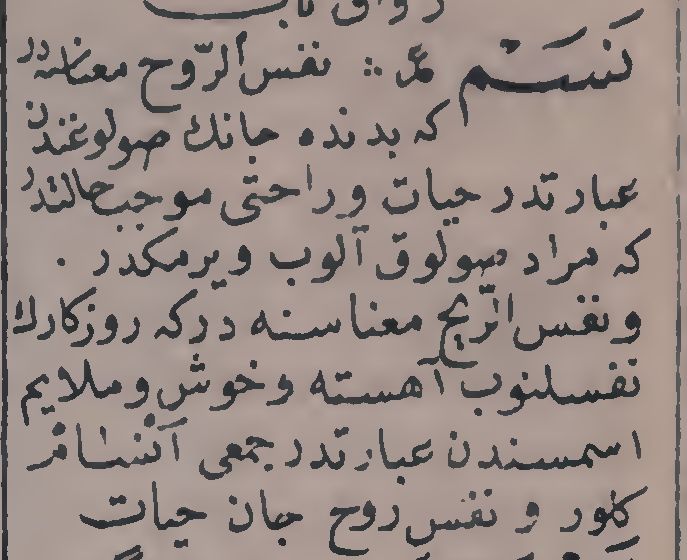 نَسَمْ عر نفس الرّوح معناسنه در
كه بدنده جانك صولوغندن
عبارتدر حيات وراحتى موجب حالتدر
كه مراد صولوق آلوب ويرمكدر .
ونفس الرّيح معناسنه دركه روزكارك
نفسلنوب آهسته وخوش وملايم
اسمسندن عبارتدر جمعى آنسام
كلور و نفس روح جان حيات